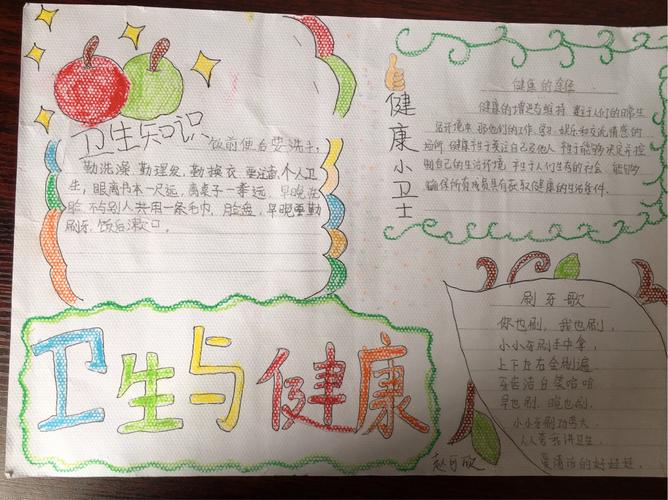 卫生知识
饭前便后要洗手,
勤洗澡,勤理发,勤换衣,要注意个人卫
生,眼离书本一尺远,离桌子一拳远,早晚洗
脸,不与别人共用一条毛巾,脸盆,早晚要勤
刷牙,饭后漱口。
健康小卫士
健康的途径
健康的增进与维持,基于人们的日常生
活环境中,那他们的工作、学习、娱乐和交流情感的
场所,健康基于关注自己及他人,基于能够决定并控
制自己的生活环境,基于人们生存的社会,能够
确保所有成员具有获取健康的生活条件。
卫生与健康
刷牙歌
你也刷,我也刷,
小小牙刷手中拿,
上下左右全刷遍,
牙齿洁白笑哈哈
早也刷,晚也刷,
小小牙刷功劳大,
人人夸我讲卫生
爱清洁的好娃娃。
赵可欣